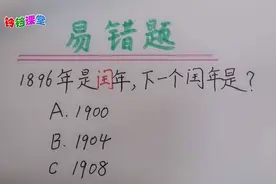 铃铛课堂
易错题
1896年是闰年,下一个闰年是?
A. 1900
B. 1904
C 1908